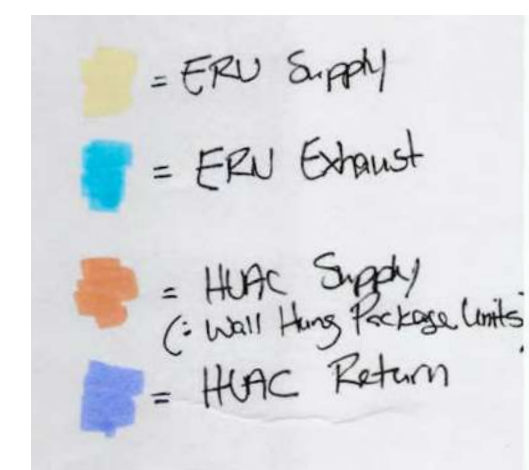 = ERU Supply
= ERU Exhaust
= HVAC Supply
(: Wall Hung Package Units
= HVAC Return